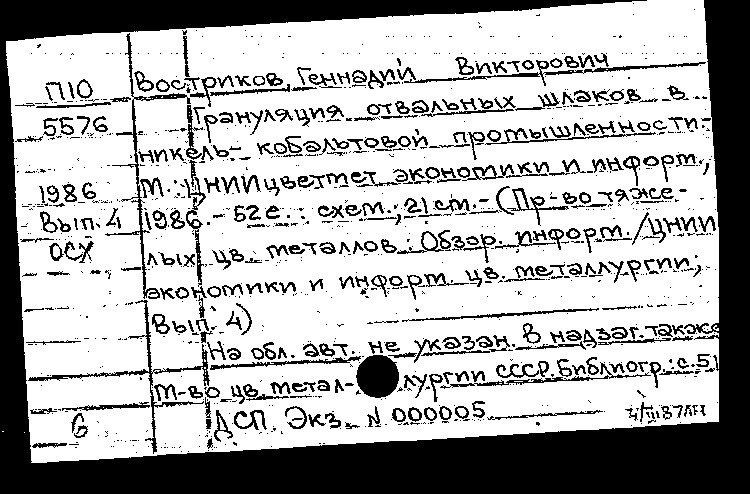 П10 Востриков, Геннадий Викторович
5576 Грануляция отвальных шлаков в
никель-кобальтовой промышленности.-
1986 М.: ЦНИИцветмет экономики и информ.,
Вып. 4 1986.- 52с.: схем.; 21 см.- (Пр-во тяже-
ОСХ лых цв. металлов: Обзор. информ./ЦНИИ
экономики и информ. цв. металлургии;
Вып. 4)
На обл. авт. не указан. В надзаг. также
М-во цв. метал-лургии СССР. Библиогр.: с. 51
6 ДСП. Экз. N 000005